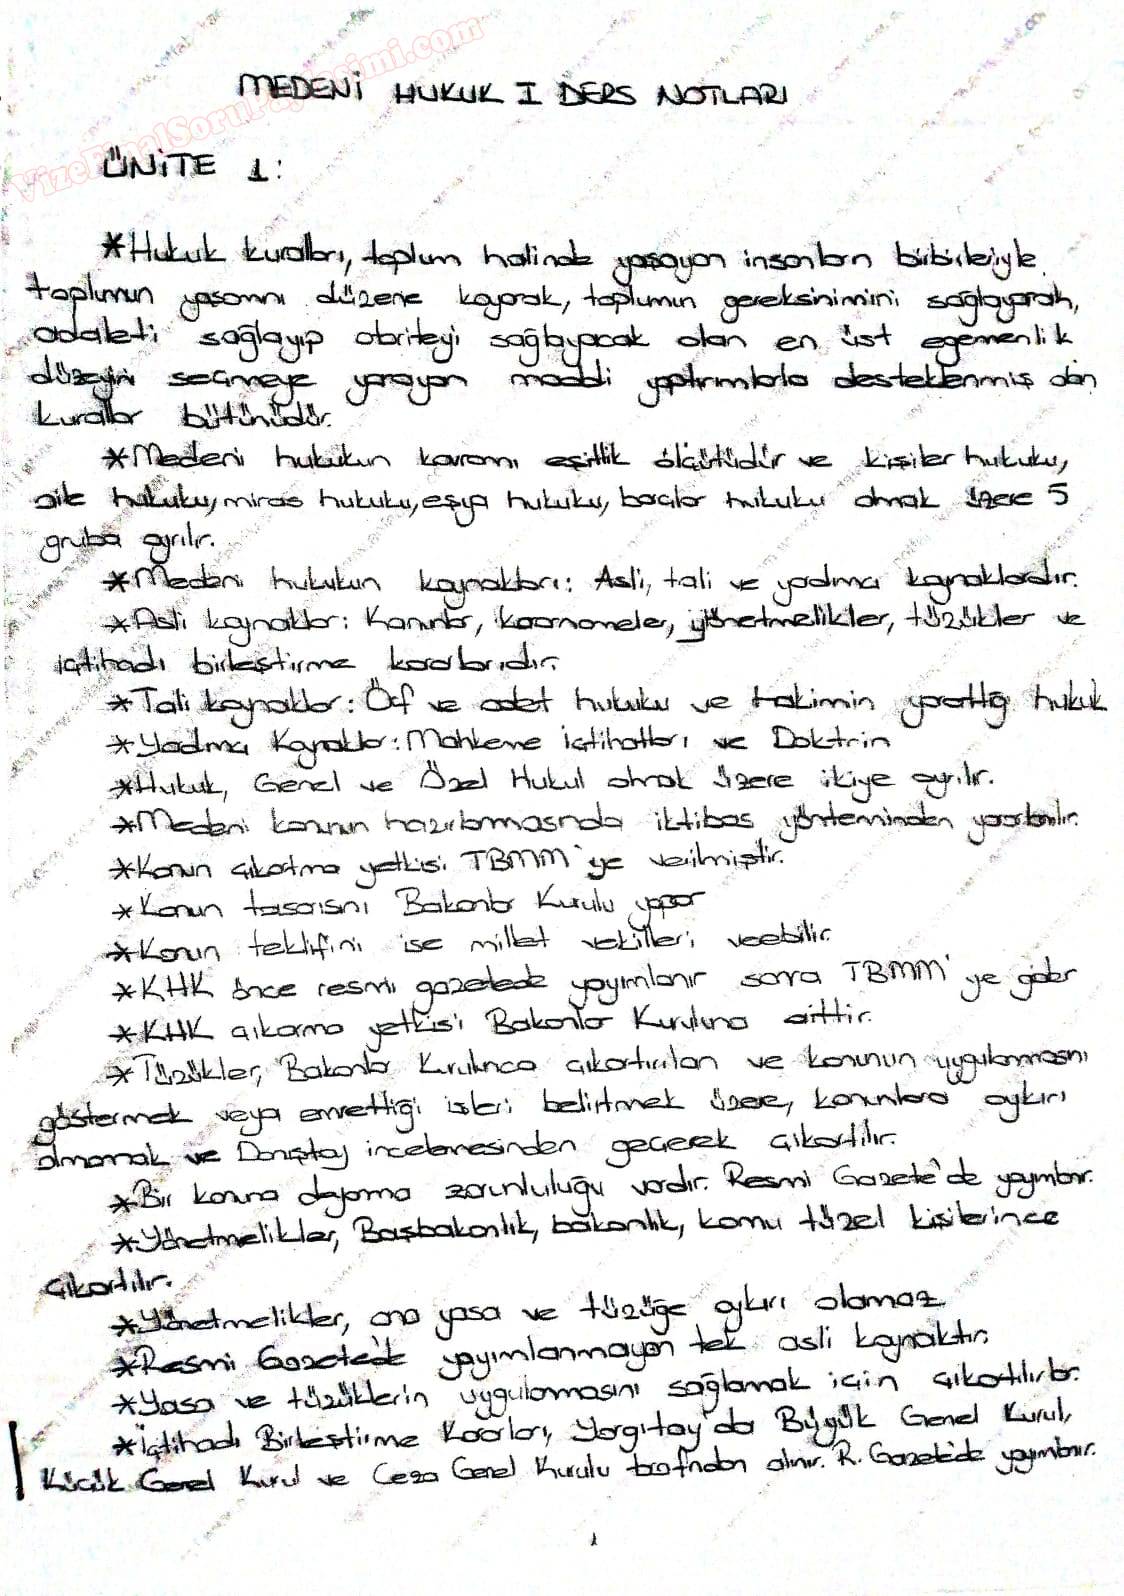 VizeFinalSoruPaylasimi.com
MEDENİ HUKUK I DERS NOTLARI
ÜNİTE 1:
*Hukuk kuralları, toplum halinde yaşayan insanların birbirleriyle
toplumun yaşamını düzene koyarak, toplumun gereksinimini sağlayarak,
adaleti sağlayıp otoriteyi sağlayacak olan en üst egemenlik
düzeyini seçmeye yarayan maddi yaptırımlarla desteklenmiş olan
kurallar bütünüdür.
*Medeni hukukun kavramı eşitlik ölçütüdür ve kişiler hukuku,
aile hukuku, miras hukuku, eşya hukuku, borçlar hukuku olmak üzere 5
gruba ayrılır.
*Medeni hukukun kaynakları: Asli, tali ve yardımcı kaynaklardır.
*Asli kaynaklar: Kanunlar, kararnameler, yönetmelikler, tüzükler ve
içtihadı birleştirme kararlarıdır.
*Tali kaynaklar: Örf ve adet hukuku ve hakimin yarattığı hukuk
*Yardımcı Kaynaklar: Mahkeme İçtihatları ve Doktrin
*Hukuk, Genel ve Özel Hukuk olmak üzere ikiye ayrılır.
*Medeni kanunun hazırlanmasında iktibas yönteminden yararlanılır.
*Kanun çıkartma yetkisi TBMM'ye verilmiştir.
*Kanun tasarısını Bakanlar Kurulu yapar
*Kanun teklifini ise millet vekilleri verebilir.
*KHK önce resmi gazetede yayımlanır sonra TBMM'ye gider
*KHK çıkarma yetkisi Bakanlar Kuruluna aittir.
*Tüzükler, Bakanlar Kurulunca çıkartırılan ve kanunun uygulanmasını
göstermek veya emrettiği işleri belirtmek üzere, kanunlara aykırı
olmamak ve Danıştay incelemesinden geçerek çıkartılır.
*Bir kanuna dayanma zorunluluğu vardır. Resmi Gazete'de yayımlanır.
*Yönetmelikler, Başbakanlık, bakanlık, kamu tüzel kişilerince
çıkartılır.
*Yönetmelikler, ana yasa ve tüzüğe aykırı olamaz
*Resmi Gazete'de yayımlanmayan tek asli kaynaktır.
*Yasa ve tüzüklerin uygulamasını sağlamak için çıkartılırlar.
*İçtihadı Birleştirme Kararları, Yargıtay'da Büyük Genel Kurul,
Küçük Genel Kurul ve Ceza Genel Kurulu tarafından alınır. R. Gazete'de yayımlanır.
1